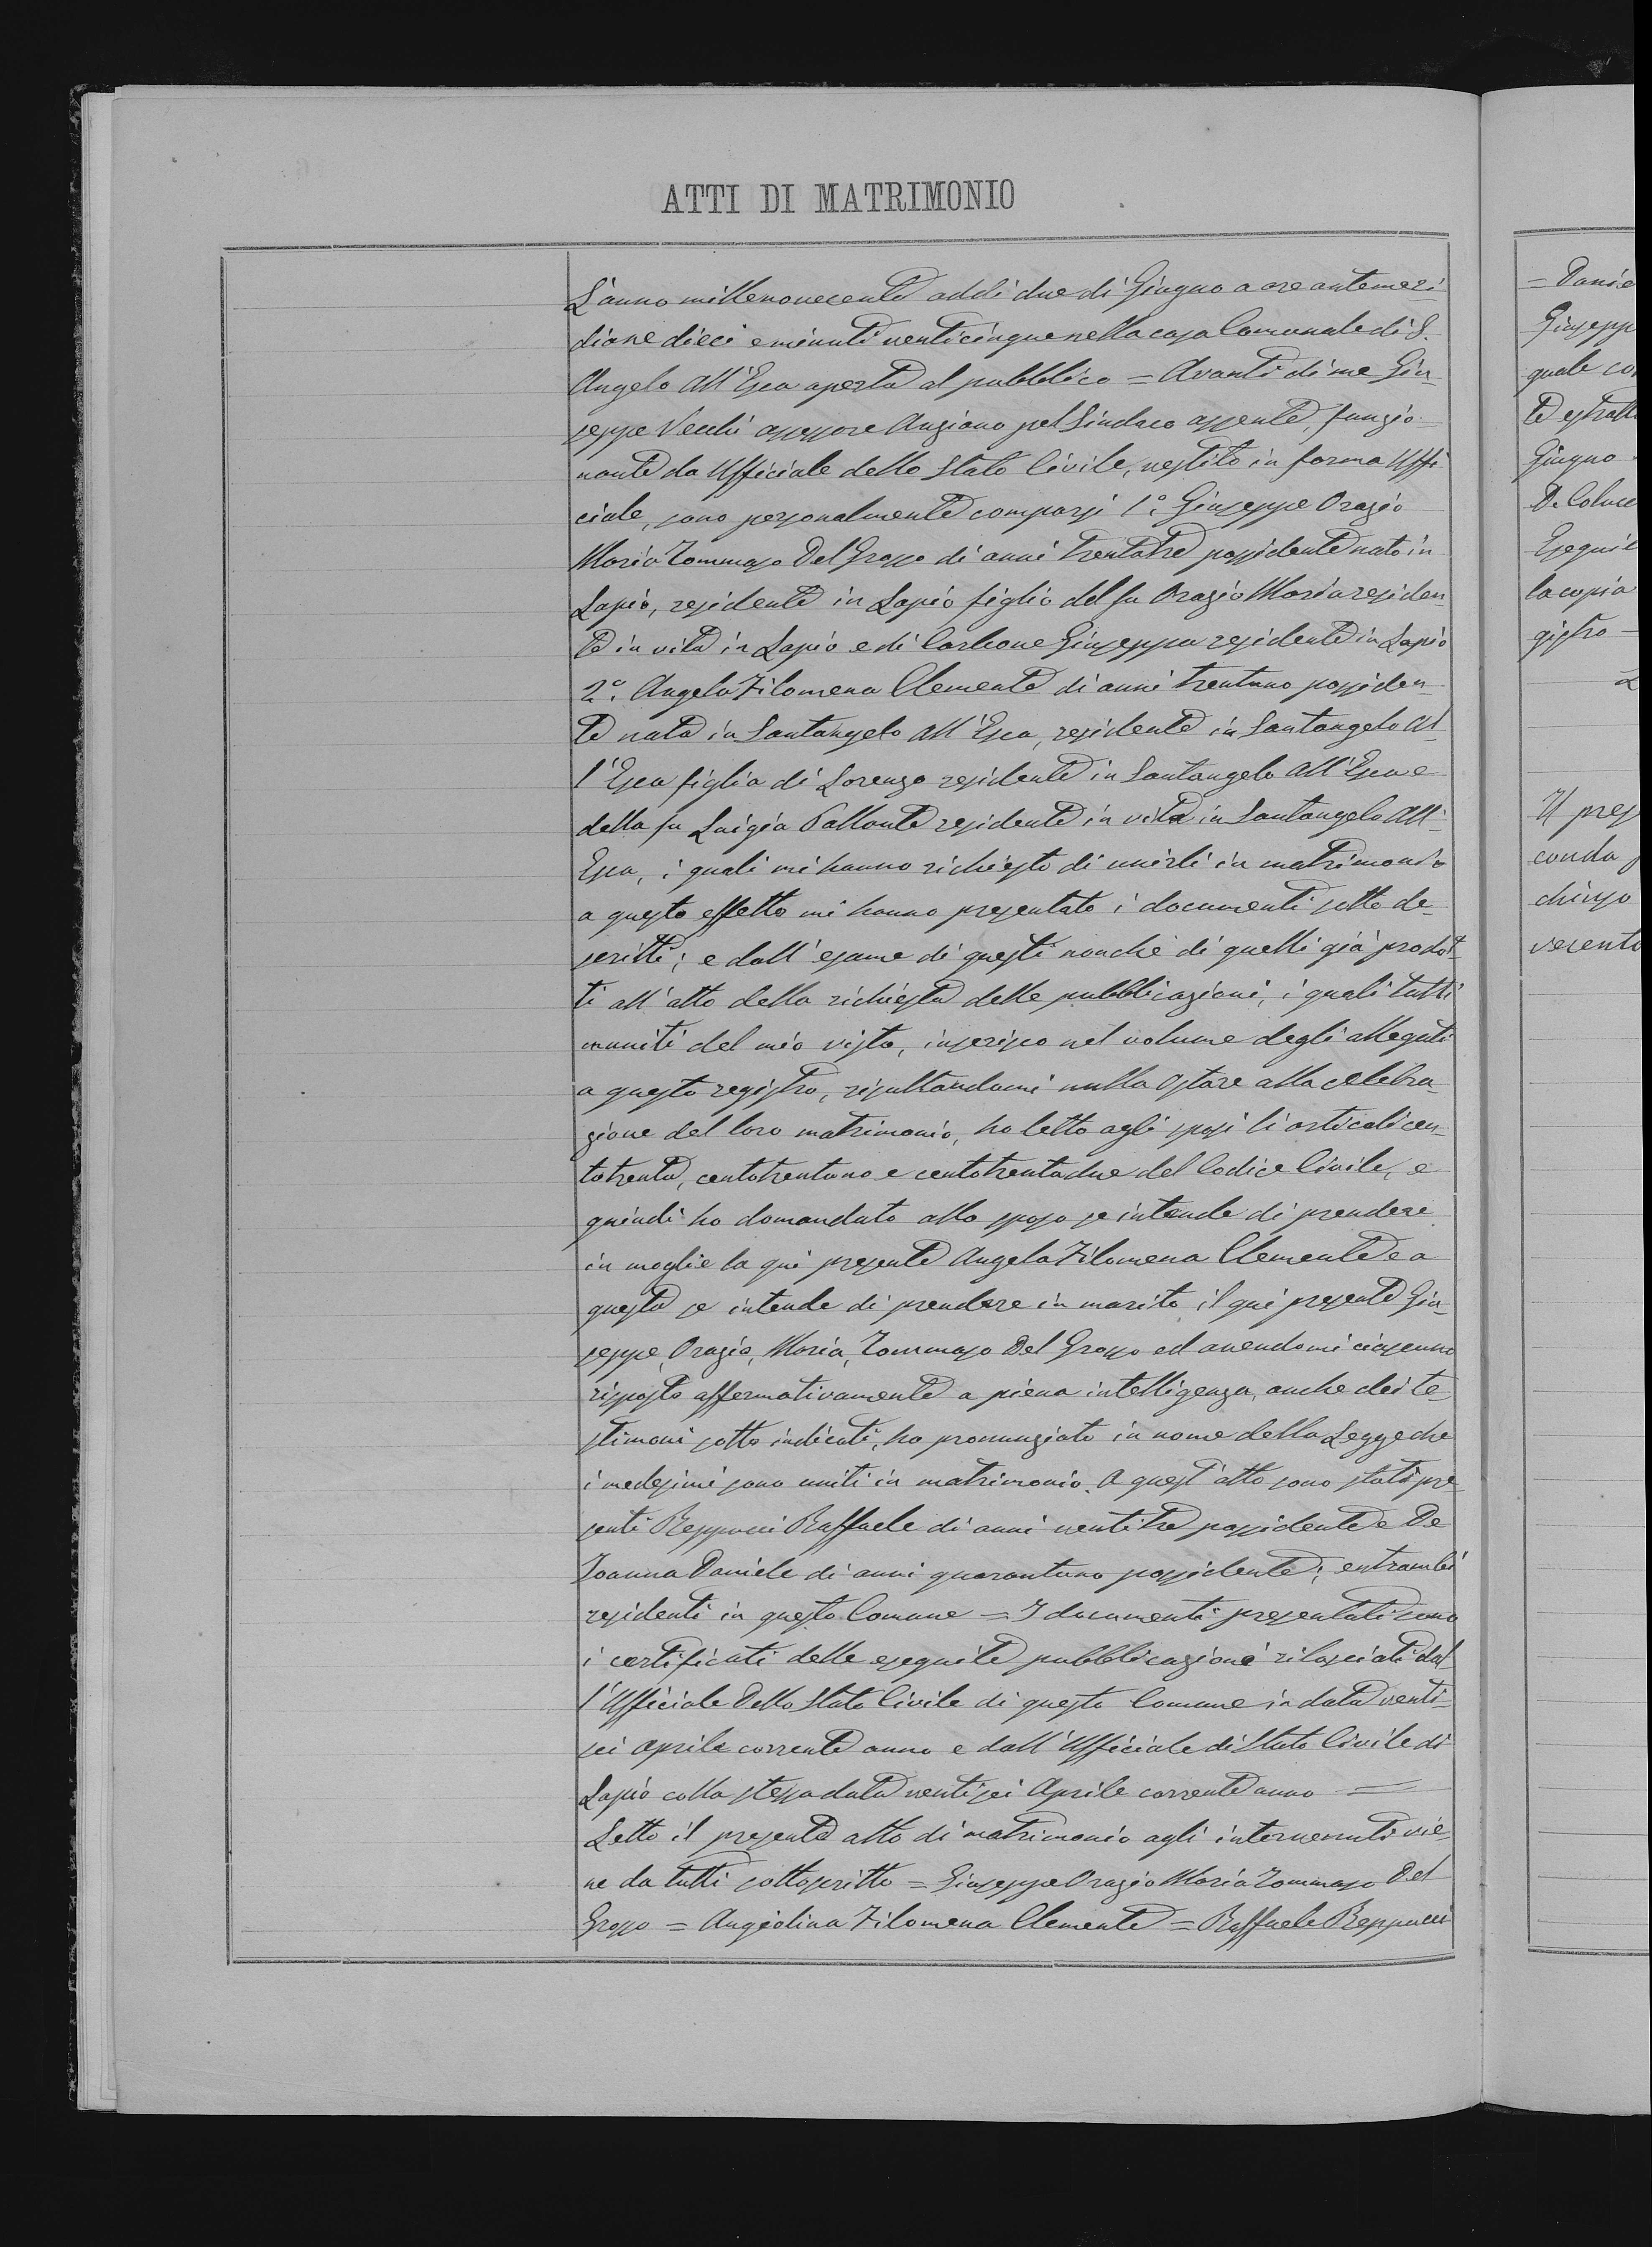 ATTI DI MATRIMONIO
L'anno millenovecento addì due di Giugno a ore antemeri-
diane dieci e minuti venticinque nella casa Comunale di S.
Angelo All'Esca aperta al pubblico = Avanti di me Giu-
seppe Vecchi assessore Anziano pel Sindaco assente, funzio-
nante da Ufficiale dello Stato Civile, vestito in forma Uffi-
ciale, sono personalmente comparsi 1º. Giuseppe Orazio
Maria Tommaso Del Grosso di anni trentatre possidente nato in
Lapio, residente in Lapio figlio del fu Orazio Maria residen-
te in vita in Lapio e di Carbone Giuseppa residente in Lapio
2º. Angela Filomena Clemente di anni trentuno possiden-
te nata in Santangelo All'Esca, residente in Santangelo Al-
l'Esca figlia di Lorenzo residente in Santangelo All'Esca e
della fu Luigia Pallante residente in vita in Santangelo All'
Esca, i quali mi hanno richiesto di unirli in matrimonio
a questo effetto mi hanno presentato i documenti sotto de-
scritti; e dall'esame di questi nonchè di quelli già prodot-
ti all'atto della richiesta delle pubblicazioni, i quali tutti
muniti del mio visto, inserisco nel volume degli allegati
a questo registro, risultandomi nulla ostare alla celebra-
zione del loro matrimonio, ho letto agli sposi li articoli cen-
totrenta, centotrentuno e centotrentadue del Codice Civile, e
quindi ho domandato allo sposo se intende di prendere
in moglie la qui presente Angela Filomena Clemente e a
questa se intende di prendere in marito il qui presente Giu-
seppe, Orazio, Maria, Tommaso Del Grosso ed avendomi ciascuno
risposto affermativamente a piena intelligenza, anche dei te-
stimoni sotto indicati, ho pronunziato in nome della Legge che
i medesimi sono uniti in matrimonio. A quest'atto sono stati pre-
senti Reppucci Raffaele di anni ventitre possidente e De
Ioanna Daniele di anni quarantuno possidente; entrambi
residenti in questo Comune = I documenti presentati sono
i certificati delle eseguite pubblicazioni rilasciati dal-
l'Ufficiale Dello Stato Civile di questo Comune in data venti-
sei Aprile corrente anno e dall'Ufficiale di Stato Civile di
Lapio colla stessa data ventisei Aprile corrente anno =
Letto il presente atto di matrimonio agli intervenuti vie-
ne da tutti sottoscritto = Giuseppe Orazio Maria Tommaso Del
Grosso = Angiolina Filomena Clemente = Raffaele Reppucci
= Danie
Giusepp
quale co
te estratt
Giugno
D. Coluc
Eseguit
la copia
gistro -
Il pres
conda
chiuso
vecento